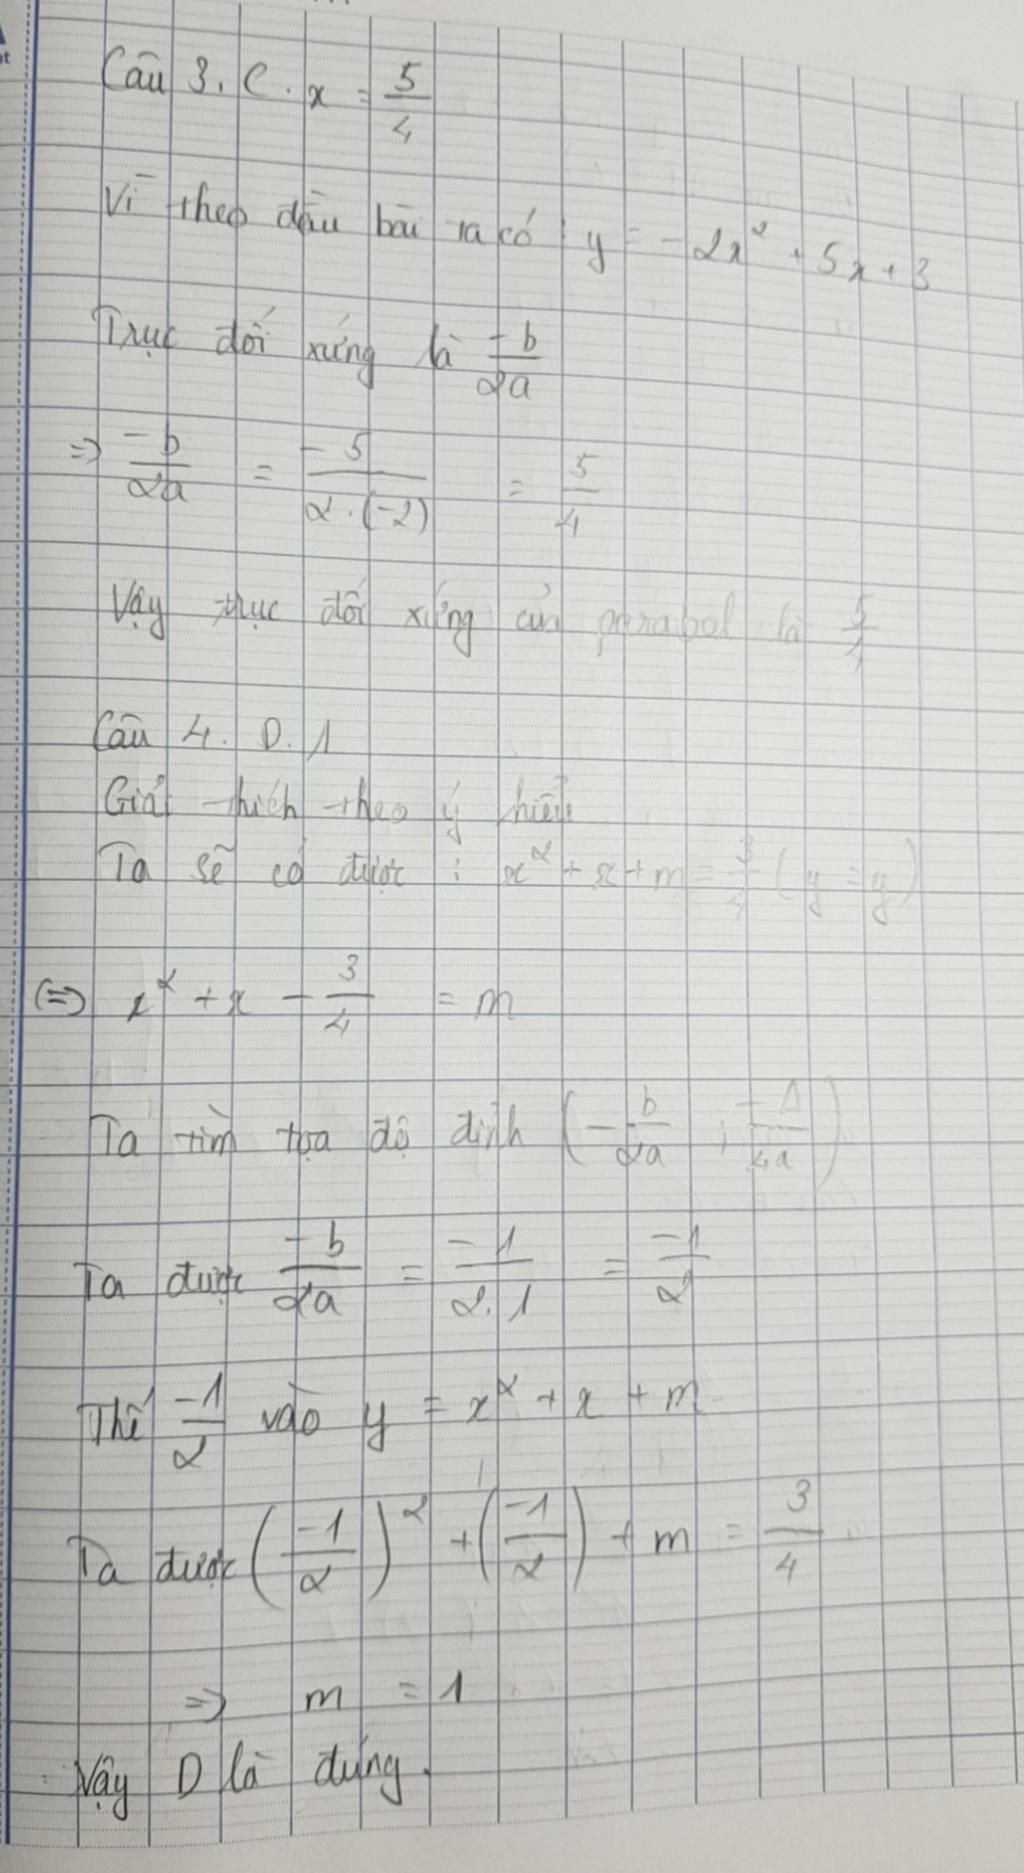 Câu 3. C. x = 5/4
Vì theo đầu bài ta có y = -2x² + 5x + 3
Trục đối xứng là -b/2a
=> -b/2a = -5/2.(-2) = 5/4
Vậy trục đối xứng của parabol là 5/4
Câu 4. D. 1
Giải thích theo ý hiểu
Ta sẽ có được : x² + x + m = 3/4 (y = y)
(=> x² + x - 3/4 = m
Ta tìm tọa độ đỉnh (-b/2a ; -Δ/4a)
Ta được -b/2a = -1/2.1 = -1/2
Thế -1/2 vào y = x² + x + m
Ta được (-1/2)² + (-1/2) + m = 3/4
=> m = 1
Vậy D là đúng.